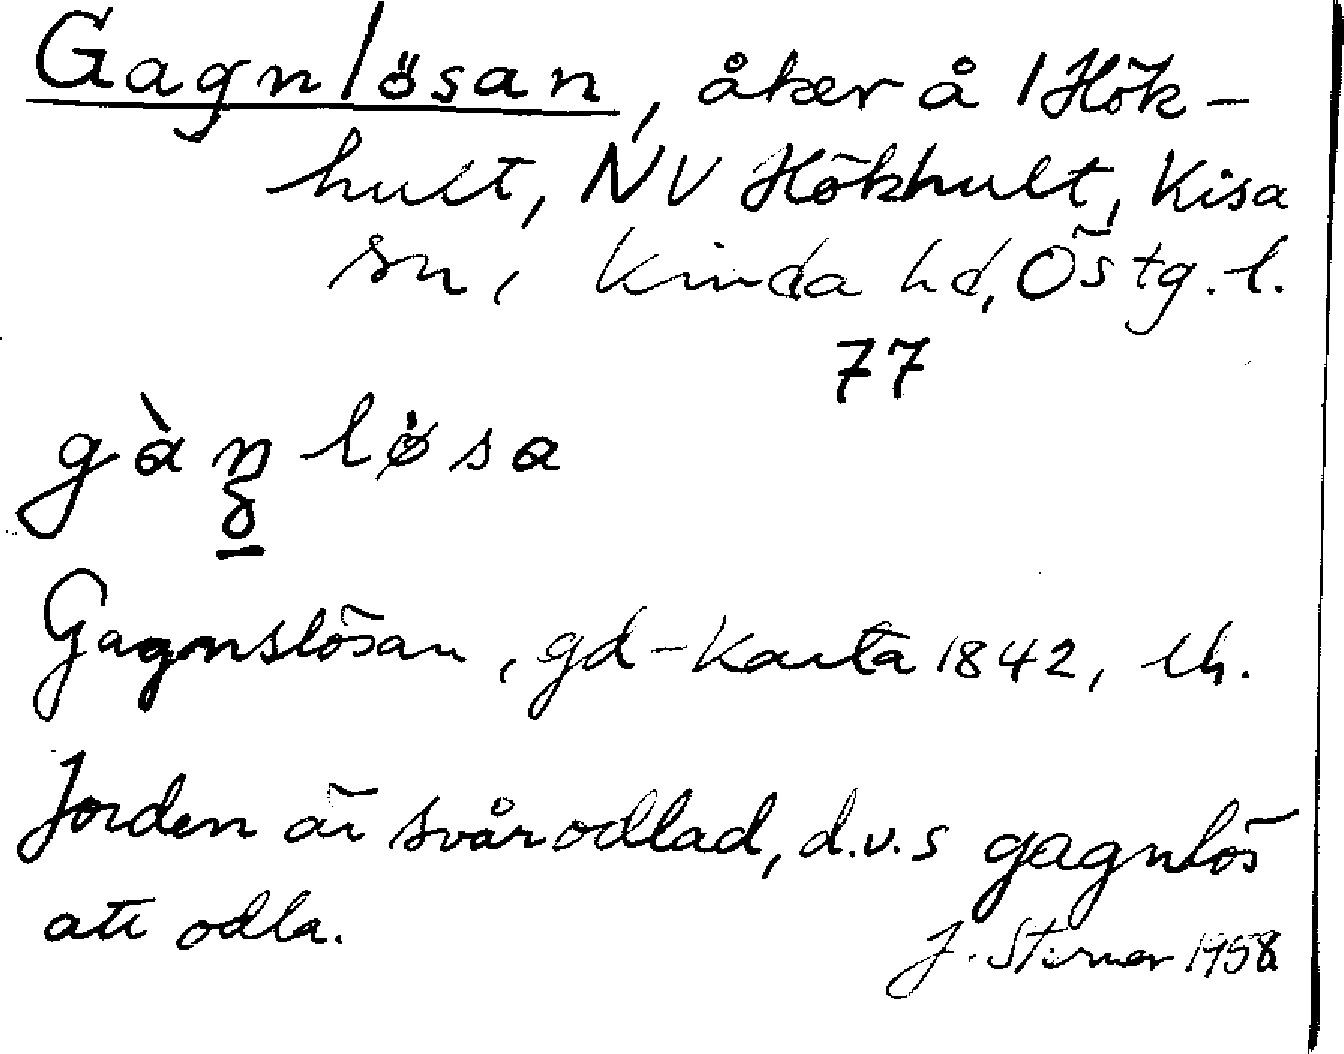 Gagnlösan, åker å 1 Hök-
hult, NV Hökhult, Kisa
sn, Kinda hd, Östg. l.
77
gàŋløsa
Gagnslösan, gd-karta 1842, lh.
Jorden är svårodlad, d.v.s gagnlös
att odla.
J. Sterner 1958